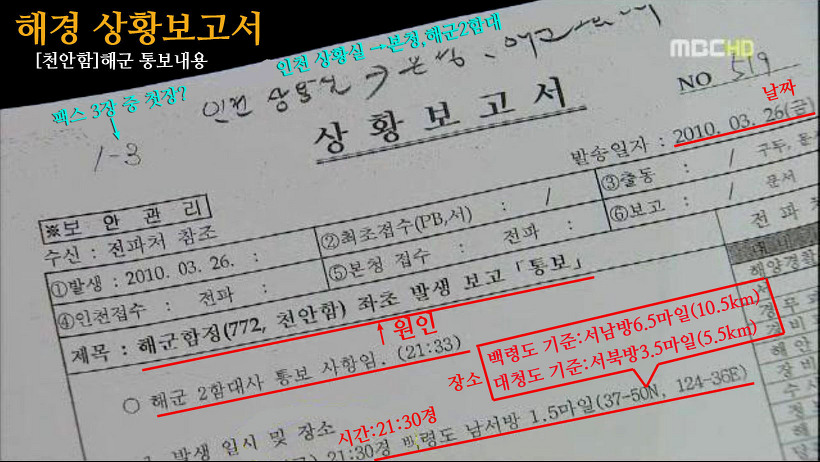 해경 상황보고서
[천안함]해군 통보내용
인천 상황실 →본청,해군2함대
MBC HD
팩스 3장 중 첫장?
인천 상황실 → 본청,
1-3
NO 519
상 황 보 고 서
날짜
발송일자 : 2010. 03. 26(금)
※보 안 관 리
수신 : 전파처 참조
①발생 : 2010. 03. 26. :
②최초접수(PB,서) : /
③출동 : / 구두, 문
④인천접수 : 전파 :
⑤본청 접수 : 전파 :
⑥보고 : / 문서
제목 : 해군함정(772, 천안함) 좌초 발생 보고 「통보」
전 파 처
해양경찰
↑원인
○ 해군 2함대사 통보 사항임. (21:33)
장소
백령도 기준:서남방6.5마일(10.5km)
대청도 기준:서북방3.5마일(5.5km)
발생 일시 및 장소
시간:21:30경
21:30경 백령도 남서방 1.5마일(37-50N, 124-36E)